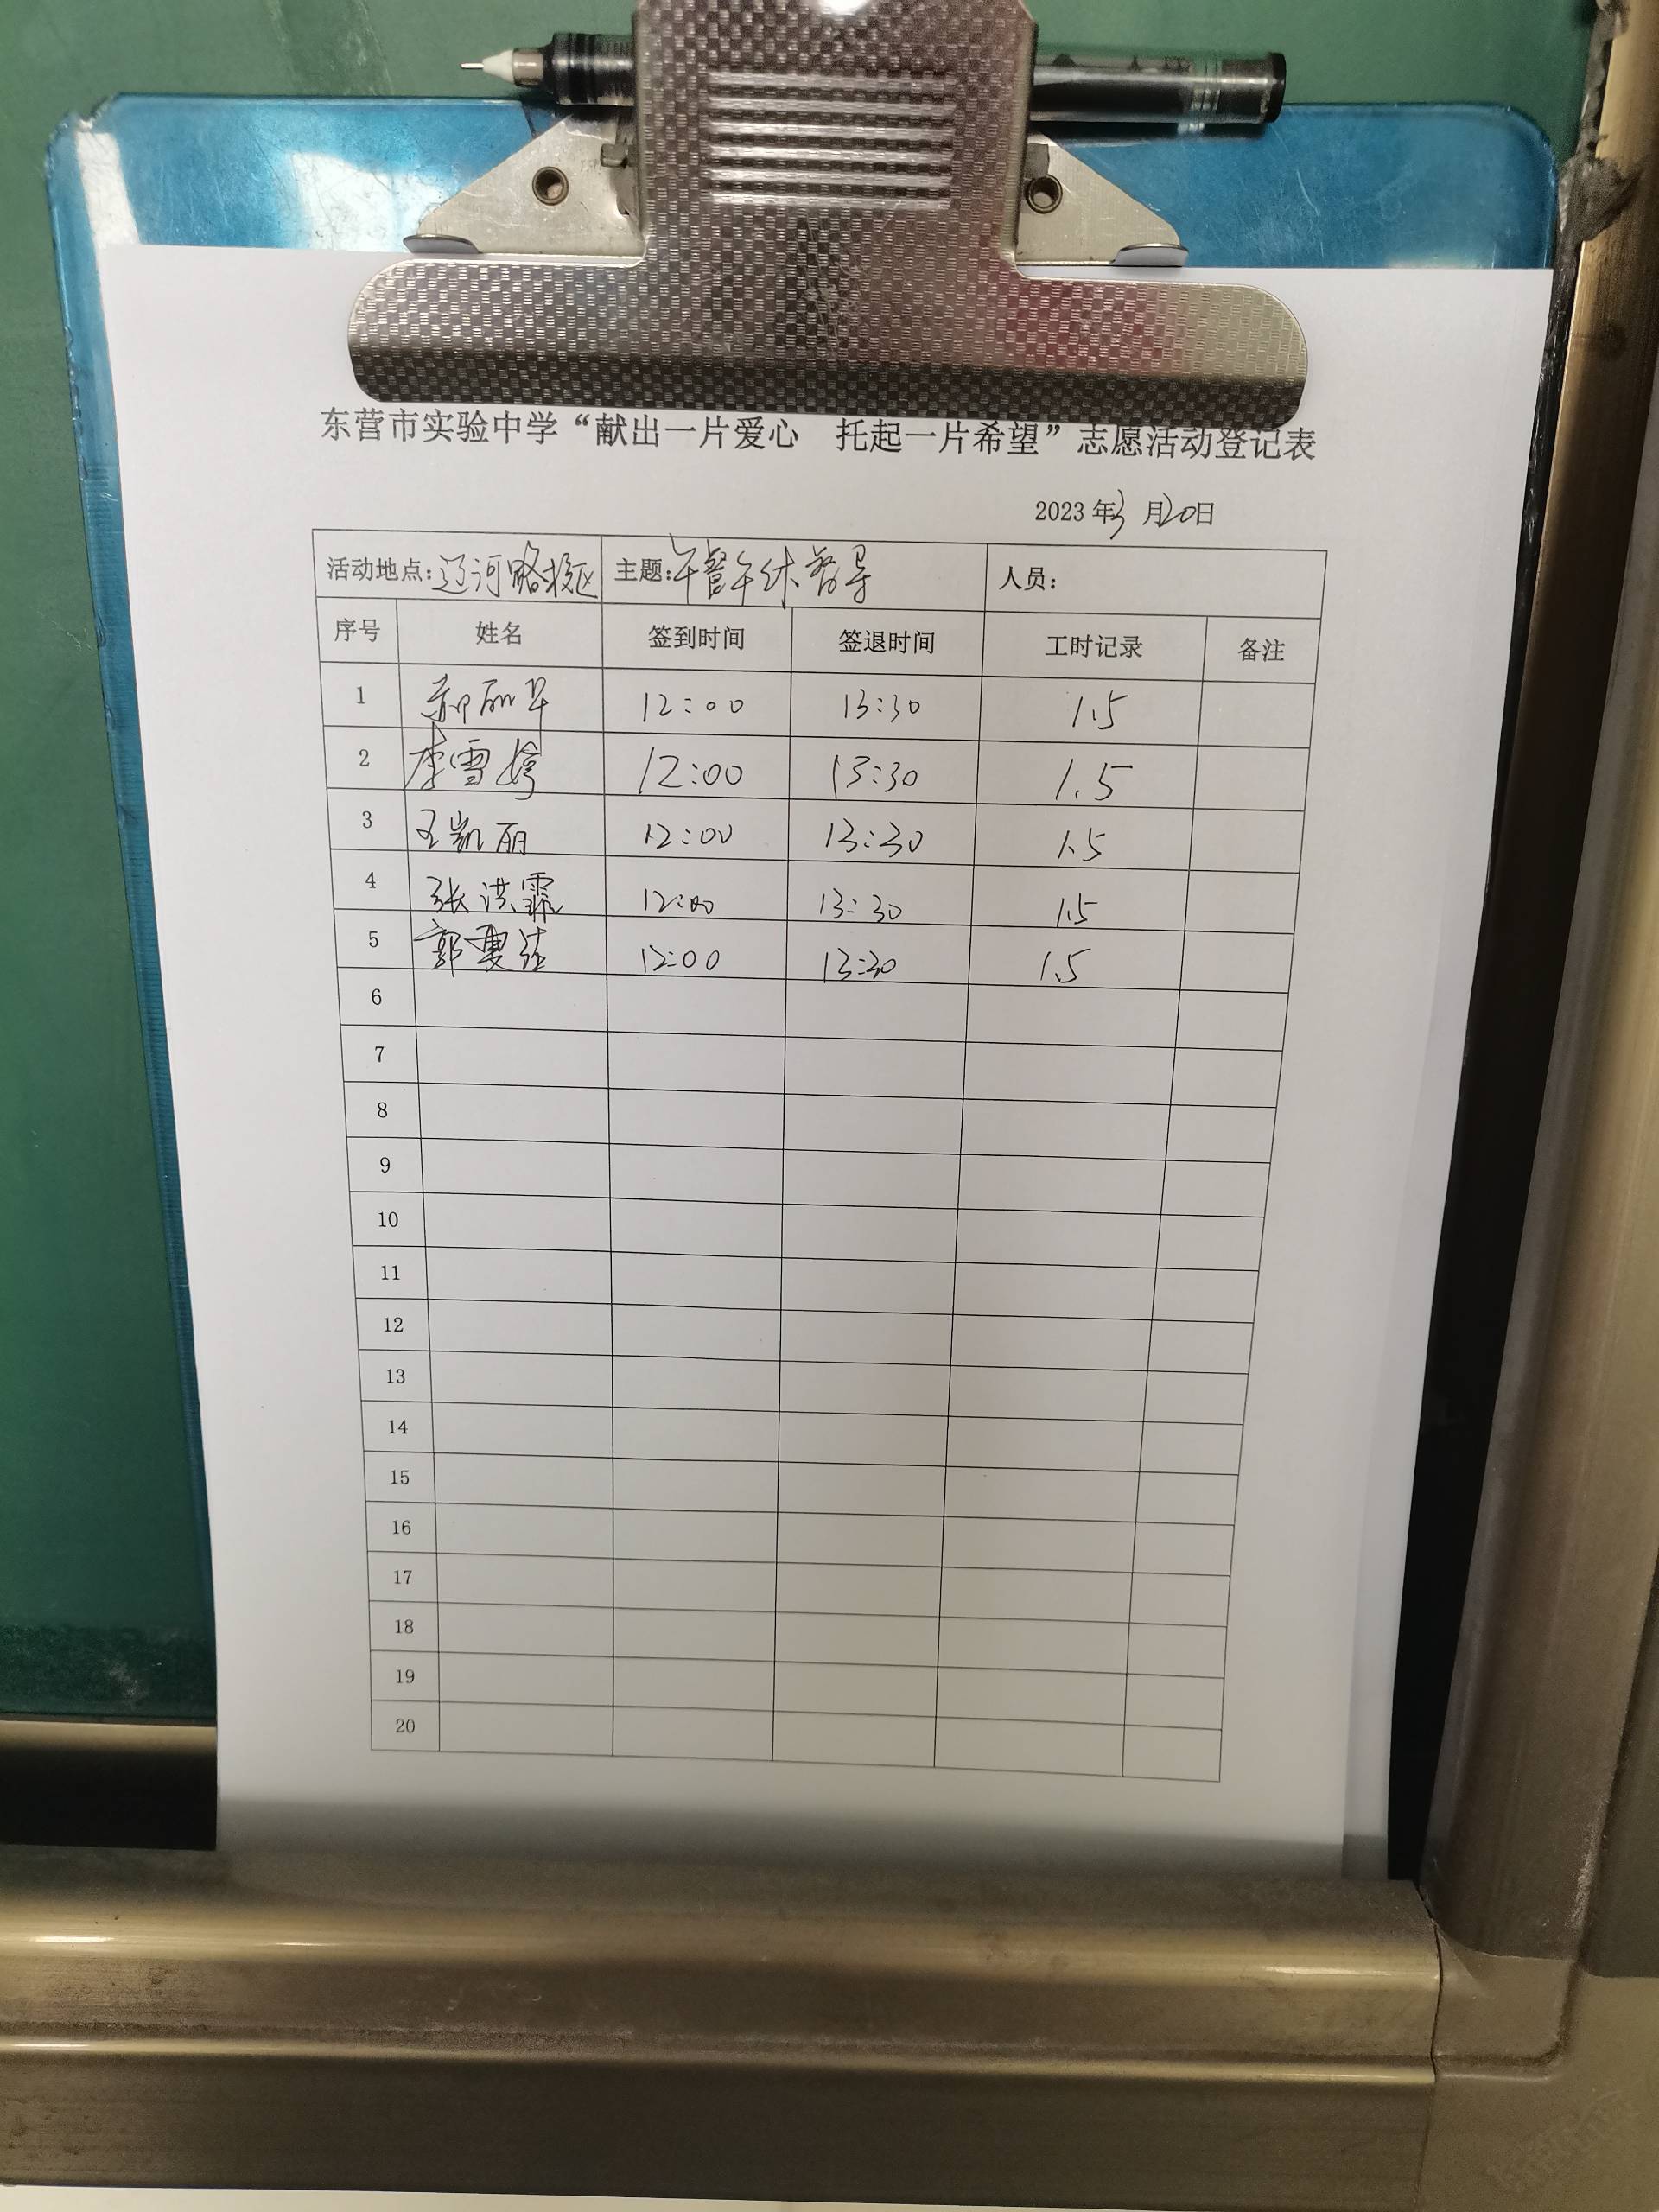 东营市实验中学“献出一片爱心 托起一片希望”志愿活动登记表
2023年3月20日
活动地点:辽河路校区 主题:午餐午休督导 人员:
序号 姓名 签到时间 签退时间 工时记录 备注
1 郝丽华 12:00 13:30 1.5
2 李雪婷 12:00 13:30 1.5
3 王凯丽 12:00 13:30 1.5
4 张洪霏 12:00 13:30 1.5
5 郭 12:00 13:30 1.5
6
7
8
9
10
11
12
13
14
15
16
17
18
19
20